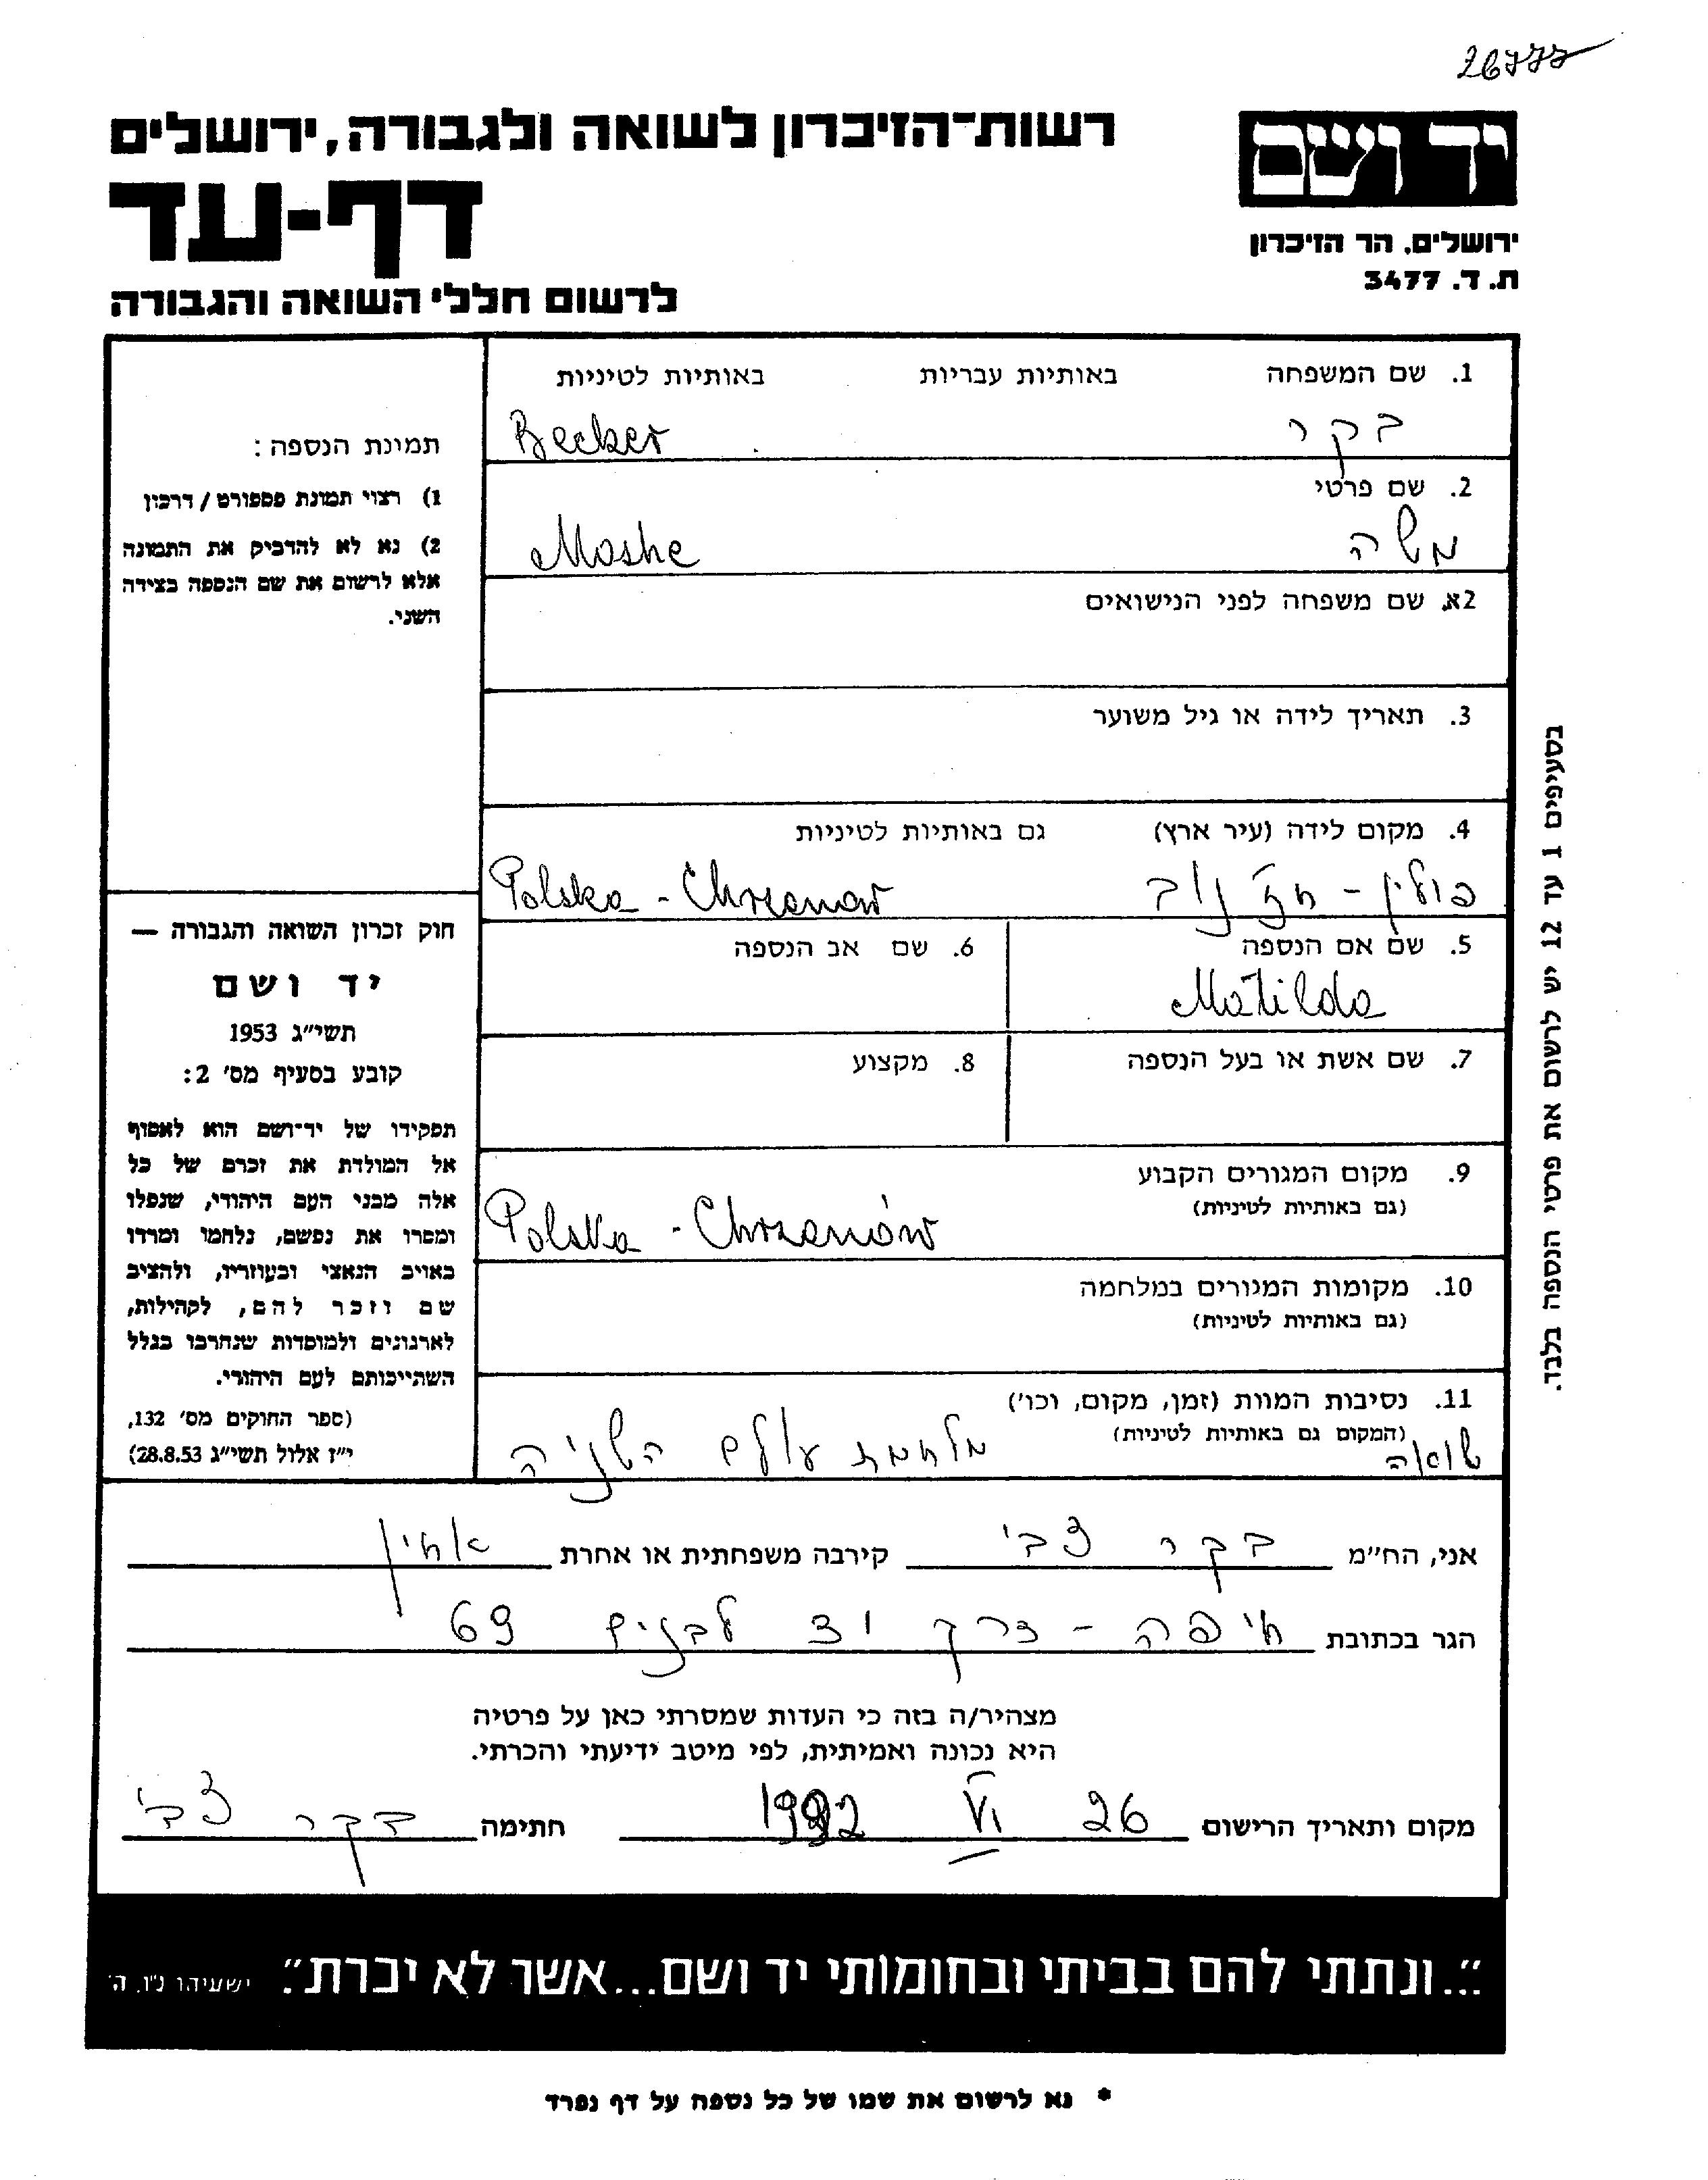 26777
יד ושם
ירושלים, הר הזיכרון
ת.ד. 3477
רשות־הזיכרון לשואה ולגבורה, ירושלים
דף-עד
לרשום חללי השואה והגבורה
1. שם המשפחה באותיות עבריות באותיות לטיניות
בקר Becker
2. שם פרטי
משה Moshe
2א. שם משפחה לפני הנישואים
3. תאריך לידה או גיל משוער
4. מקום לידה (עיר ארץ) גם באותיות לטיניות
פולין - חז'נוב Polska - Chrzanow
5. שם אם הנספה 6. שם אב הנספה
Matilda
7. שם אשת או בעל הנספה 8. מקצוע
9. מקום המגורים הקבוע
(גם באותיות לטיניות)
Polska - Chrzanów
10. מקומות המגורים במלחמה
(גם באותיות לטיניות)
11. נסיבות המוות (זמן, מקום, וכו')
(המקום גם באותיות לטיניות)
שואה מלחמת עולם השניה
תמונת הנספה:
1) רצוי תמונת פספורט / דרכון
2) נא לא להדביק את התמונה
אלא לרשום את שם הנספה בצידה
השני.
חוק זכרון השואה והגבורה —
יד ושם
תשי״ג 1953
קובע בסעיף מס' 2:
תפקידו של יד־ושם הוא לאסוף
אל המולדת את זכרם של כל
אלה מבני העם היהודי, שנפלו
ומסרו את נפשם, נלחמו ומרדו
באויב הנאצי ובעוזריו, ולהציב
שם וזכר להם, לקהילות,
לארגונים ולמוסדות שנחרבו בגלל
השתייכותם לעם היהודי.
(ספר החוקים מס' 132,
י״ז אלול תשי״ג 28.8.53)
בסעיפים 1 עד 12 יש לרשום את פרטי הנספה בלבד.
אני, הח״מ בקר צבי קירבה משפחתית או אחרת אחיין
הגר בכתובת חיפה - דרך לבנים 69
מצהיר/ה בזה כי העדות שמסרתי כאן על פרטיה
היא נכונה ואמיתית, לפי מיטב ידיעתי והכרתי.
מקום ותאריך הרישום 26 VI 1992 חתימה בקר צבי
״...ונתתי להם בביתי ובחומותי יד ושם...אשר לא יכרת״. ישעיהו נ״ו, ה'
* נא לרשום את שמו של כל נספה על דף נפרד